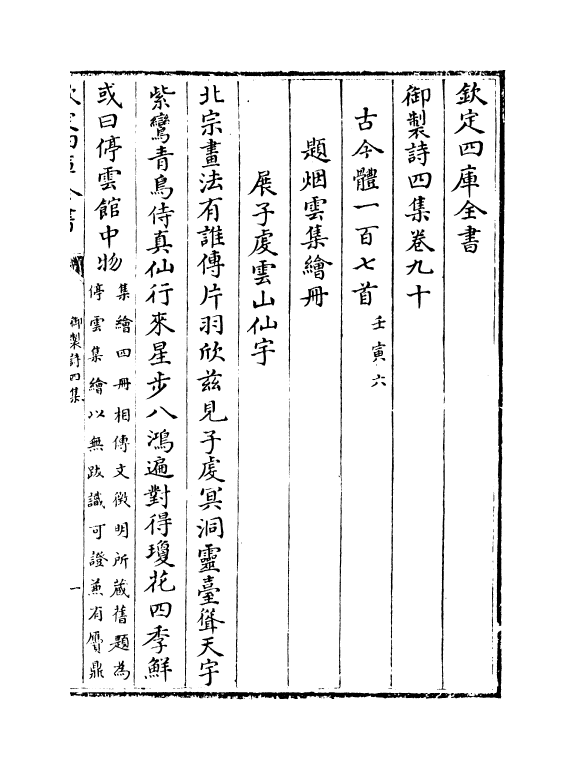 欽定四庫全書
御製詩四集卷九十
古今體一百七首壬寅六
題烟雲集繪册
展子虔雲山仙宇
北宗畫法有誰傳片羽欣兹見子虔冥洞靈臺聳天宇
紫鸞青鳥侍真仙行來星步八鴻遍對得瓊花四季鮮
或曰停雲館中物集繪四册相傳文徵明所蔵舊題為
停雲集繪以無跋識可證兼有贋鼎
御製詩四集
一